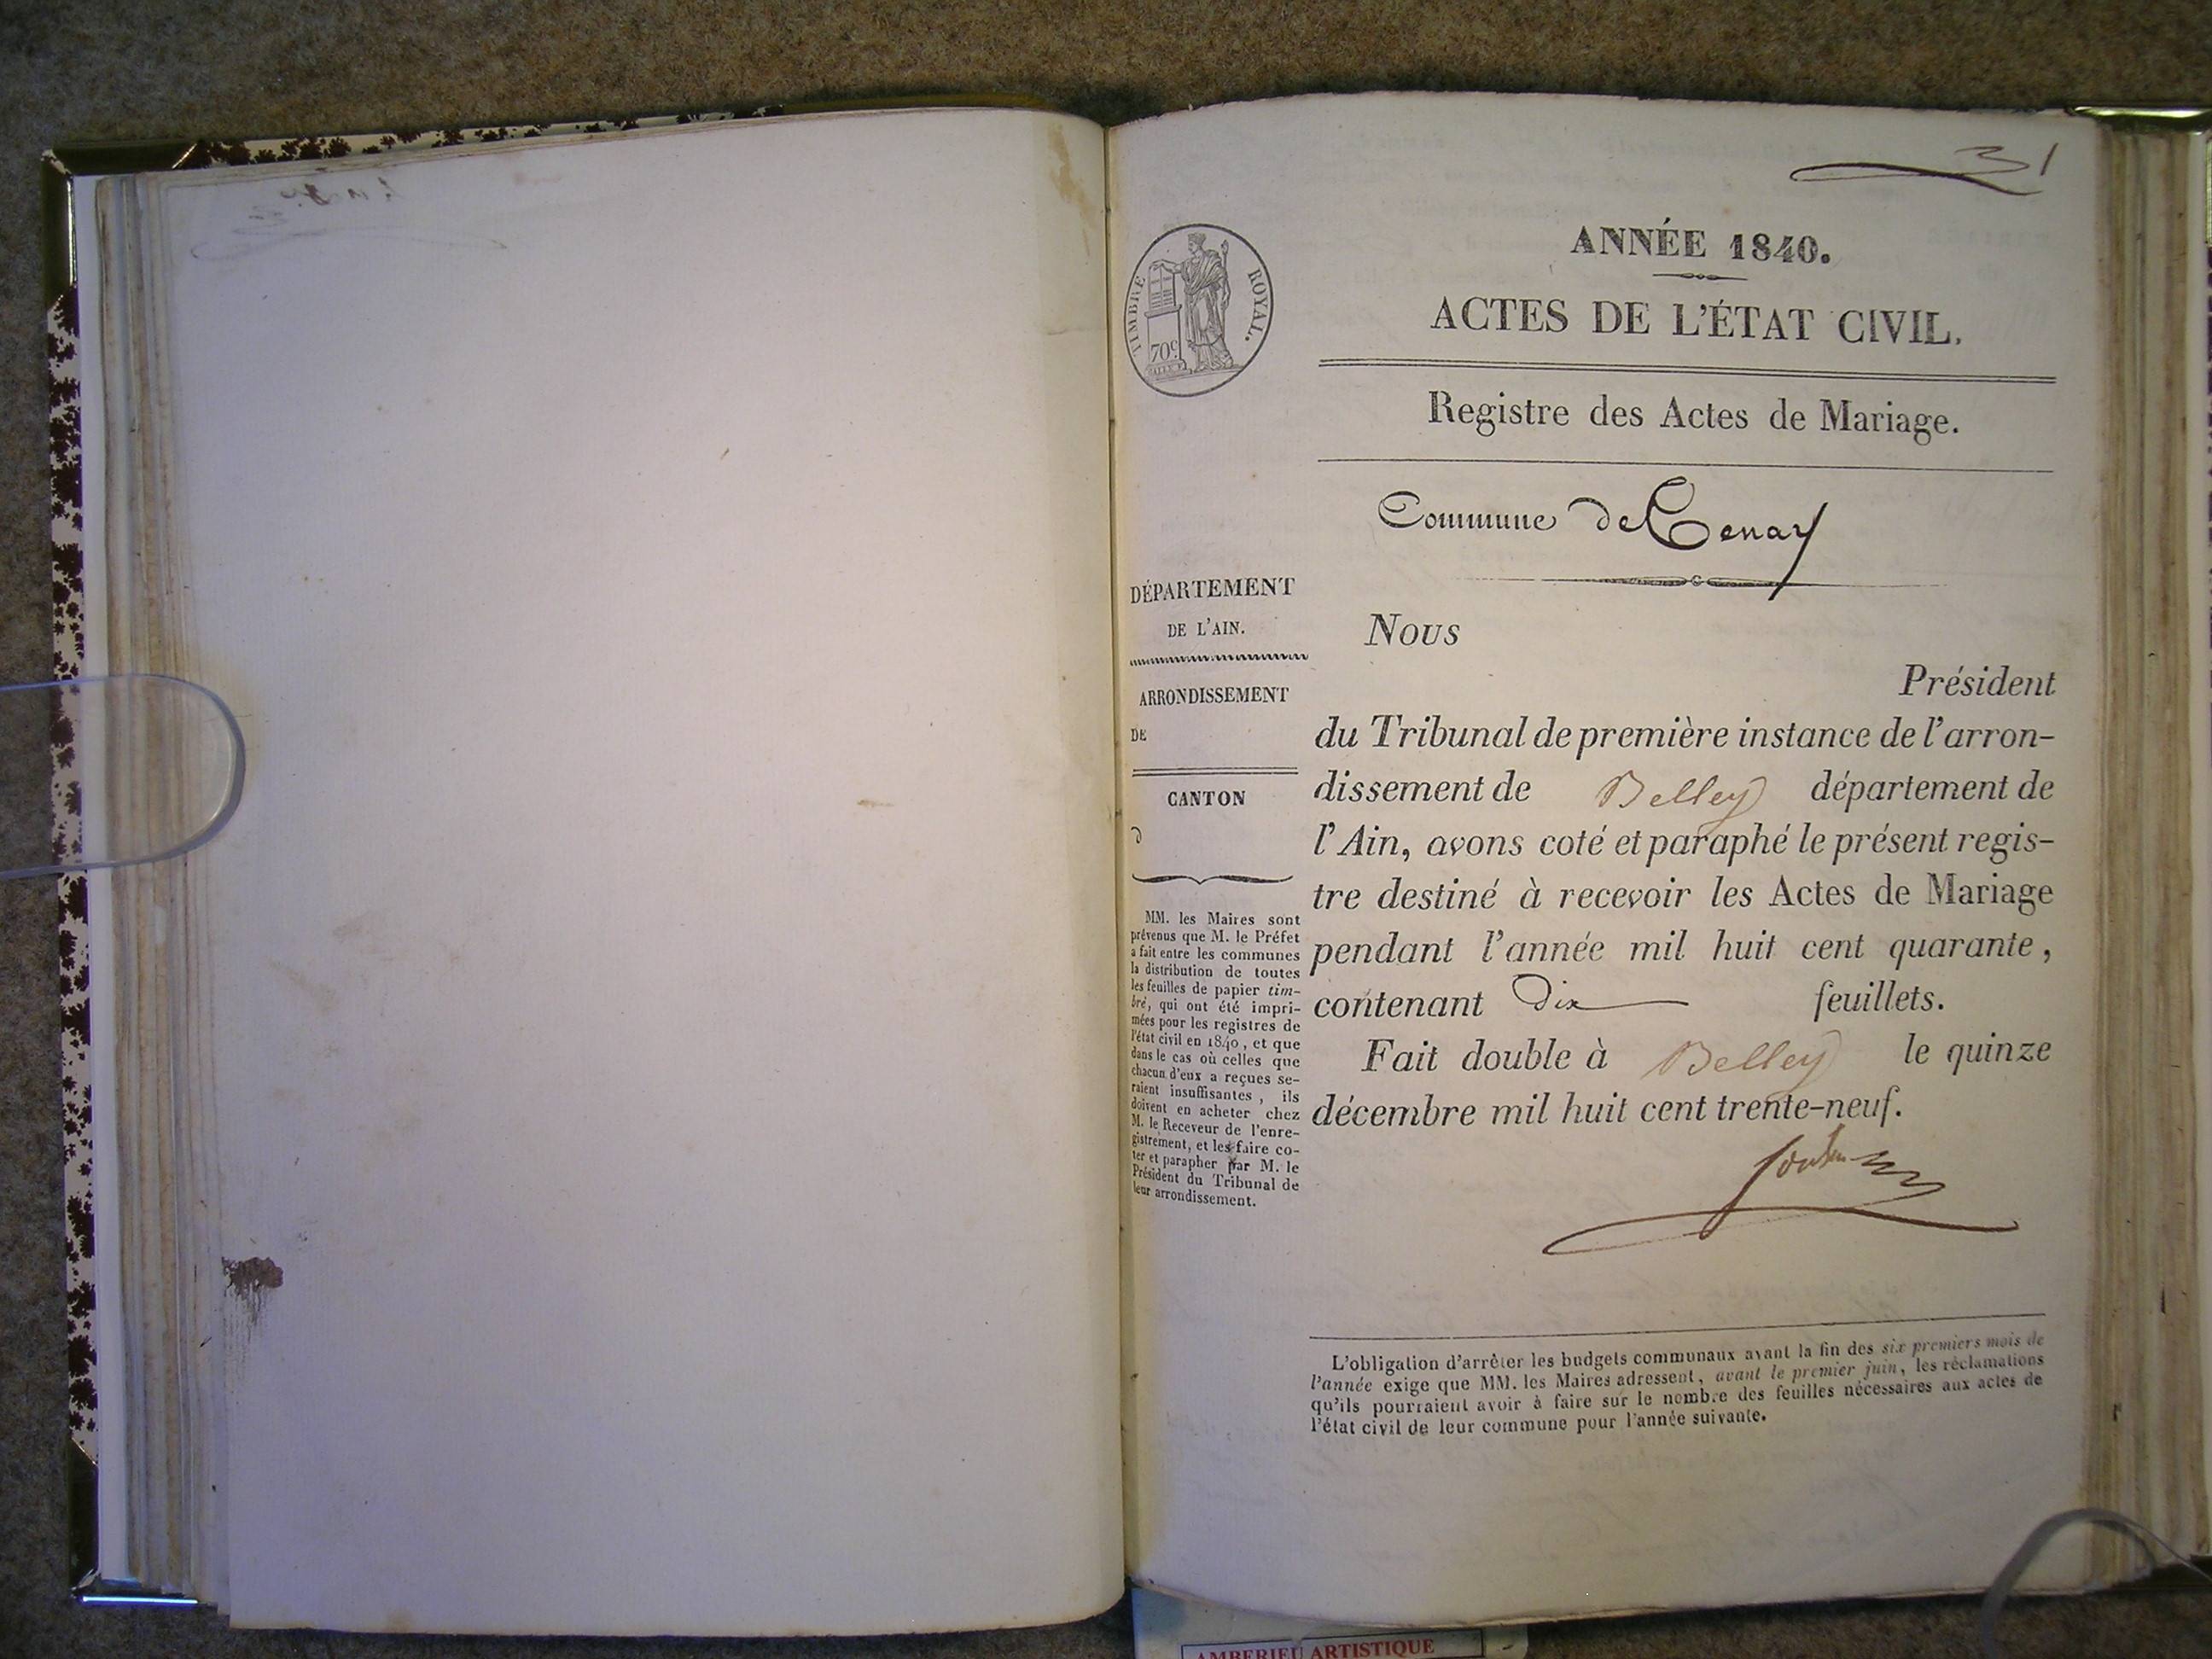 31
ANNÉE 1840.
ACTES DE L'ÉTAT CIVIL.
TIMBRE ROYAL.
70c
Registre des Actes de Mariage.
Commune de Tenay
DÉPARTEMENT
DE L'AIN.
ARRONDISSEMENT
DE
CANTON
d
MM. les Maires sont
prévenus que M. le Préfet
a fait entre les communes
la distribution de toutes
les feuilles de papier tim-
bré, qui ont été impri-
mées pour les registres de
l'état civil en 1840, et que
dans le cas où celles que
chacun d'eux a reçues se-
raient insuffisantes, ils
doivent en acheter chez
M. le Receveur de l'enre-
gistrement, et les faire co-
ter et parapher par M. le
Président du Tribunal de
leur arrondissement.
Nous
Président
du Tribunal de première instance de l'arron-
dissement de Belley département de
l'Ain, avons coté et paraphé le présent regis-
tre destiné à recevoir les Actes de Mariage
pendant l'année mil huit cent quarante,
contenant dix feuillets.
Fait double à Belley le quinze
décembre mil huit cent trente-neuf.
L'obligation d'arrêter les budgets communaux avant la fin des six premiers mois de
l'année exige que MM. les Maires adressent, avant le premier juin, les réclamations
qu'ils pourraient avoir à faire sur le nombre des feuilles nécessaires aux actes de
l'état civil de leur commune pour l'année suivante.
AMBERIEU ARTISTIQUE